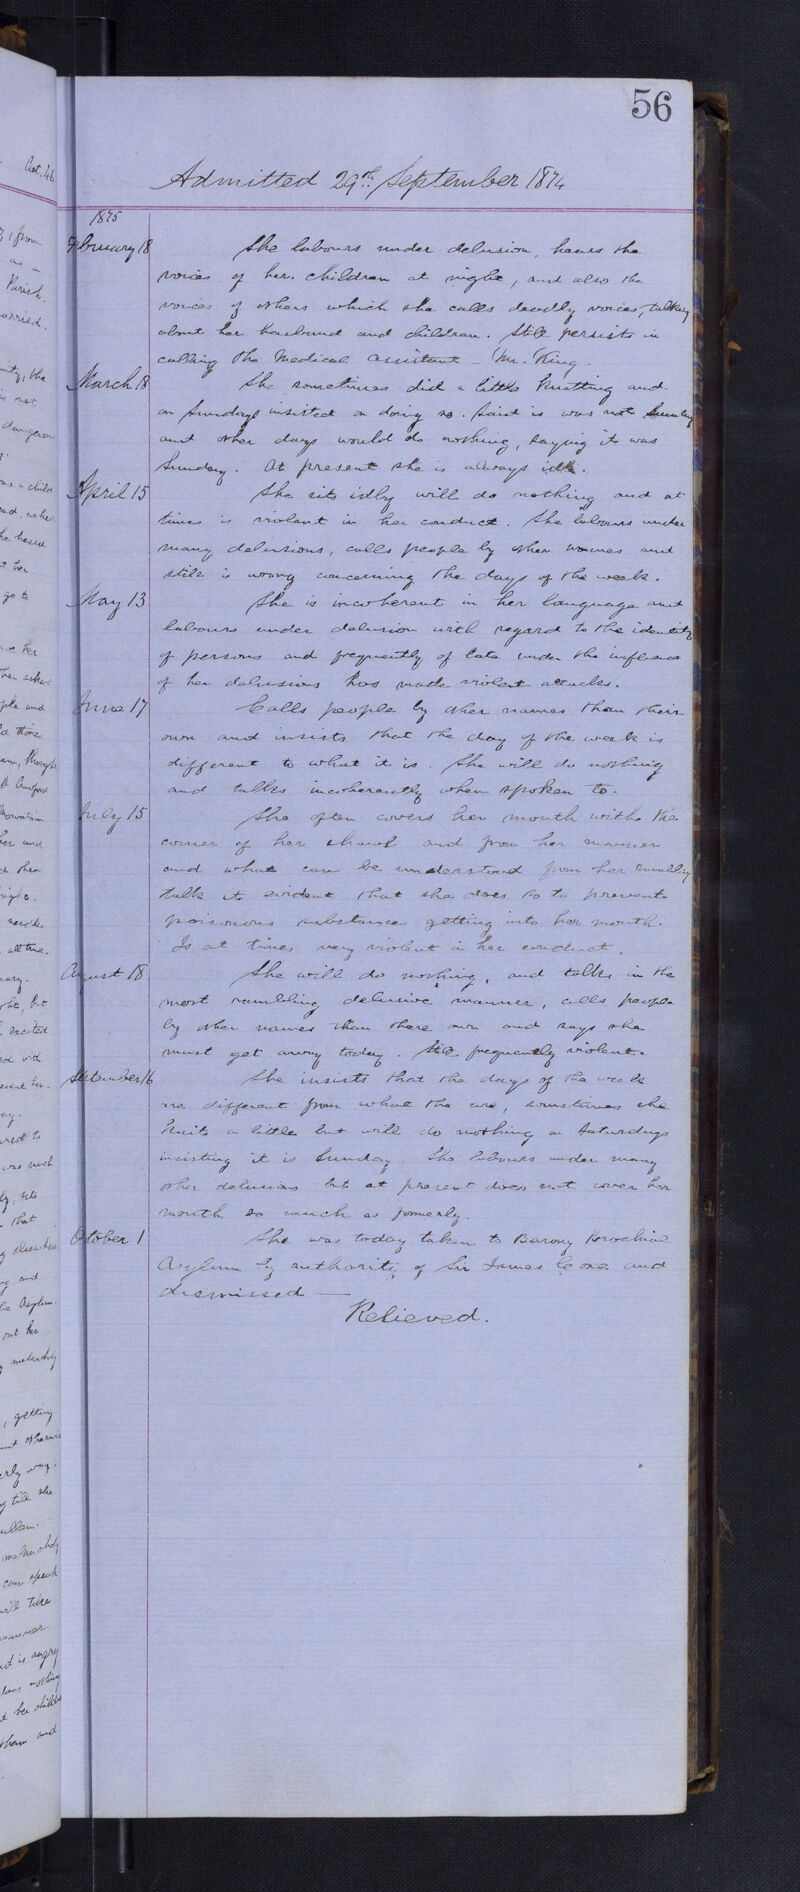 56
Admitted 29th September 1874
1875
February 18 She labours under delusion, hears the
voices of her children at night, and also the
voices of others which she calls deadly voices, talking
about her husband and children. Still persists in
calling the Medical assistant Mr. King.
March 18 She sometimes did a little knitting and
on Sundays insisted on doing so. Said is was not Sunday
and other days would do nothing, saying it was
Sunday. At present she is always idle.
April 15 She sits idly will do nothing and at
times is violent in her conduct. She labours under
many delusions, calls people by other names and
still is wrong concerning the days of the week.
May 13 She is incoherent in her language and
labours under delusion with regard to the identity
of persons and frequently of late under the influence
of her delusions has made violent attacks.
June 17 Calls people by other names than their
own and insists that the day of the week is
different to what it is. She will do nothing
and talks incoherently when spoken to.
July 15 She often covers her mouth with the
corner of her shawl and from her manner
and what can be understood from her rambling
talk it evident that she does so to prevent
poisonous substances getting into her mouth.
Is at times very violent in her conduct.
August 18 She will do nothing, and talks in the
most rambling delusive manner, calls people
by other names than there own and says she
must get away today. Still frequently violent.
September 16 She insists that the days of the week
are different from what the are, sometimes she
knits a little but will do nothing on Saturdays
insisting it is Sunday. She labours under many
other delusions but at present does not cover her
mouth so much as formerly.
October 1 She was today taken to Barony Parochial
Asylum by authority of Sir James Coxe and
dismissed —
Relieved.